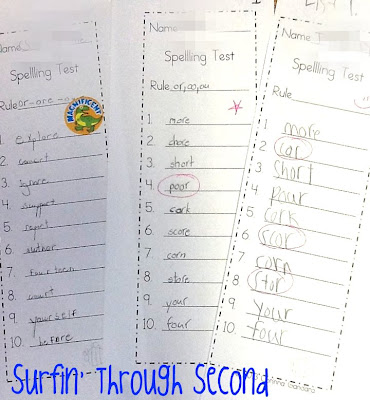 Name
Spellling Test
Rule or-ore-
MAGNIFICENT
1. explore
2.
3. ignore
4. support
5. report
6. author
7. fourteen
8. court
9. yourself
10. before
Name
Spellling Test
Rule or, oo, ou
1. more
2. chore
3. short
4. poor
5. cork
6. score
7. corn
8. store
9. your
10. four
List 1
Name T
Spellling Test
Rule
1. more
2. car
3. short
4. pour
5. cork
6. scor
7. corn
8. stor
9. your
10. four
Surfin' Through Second